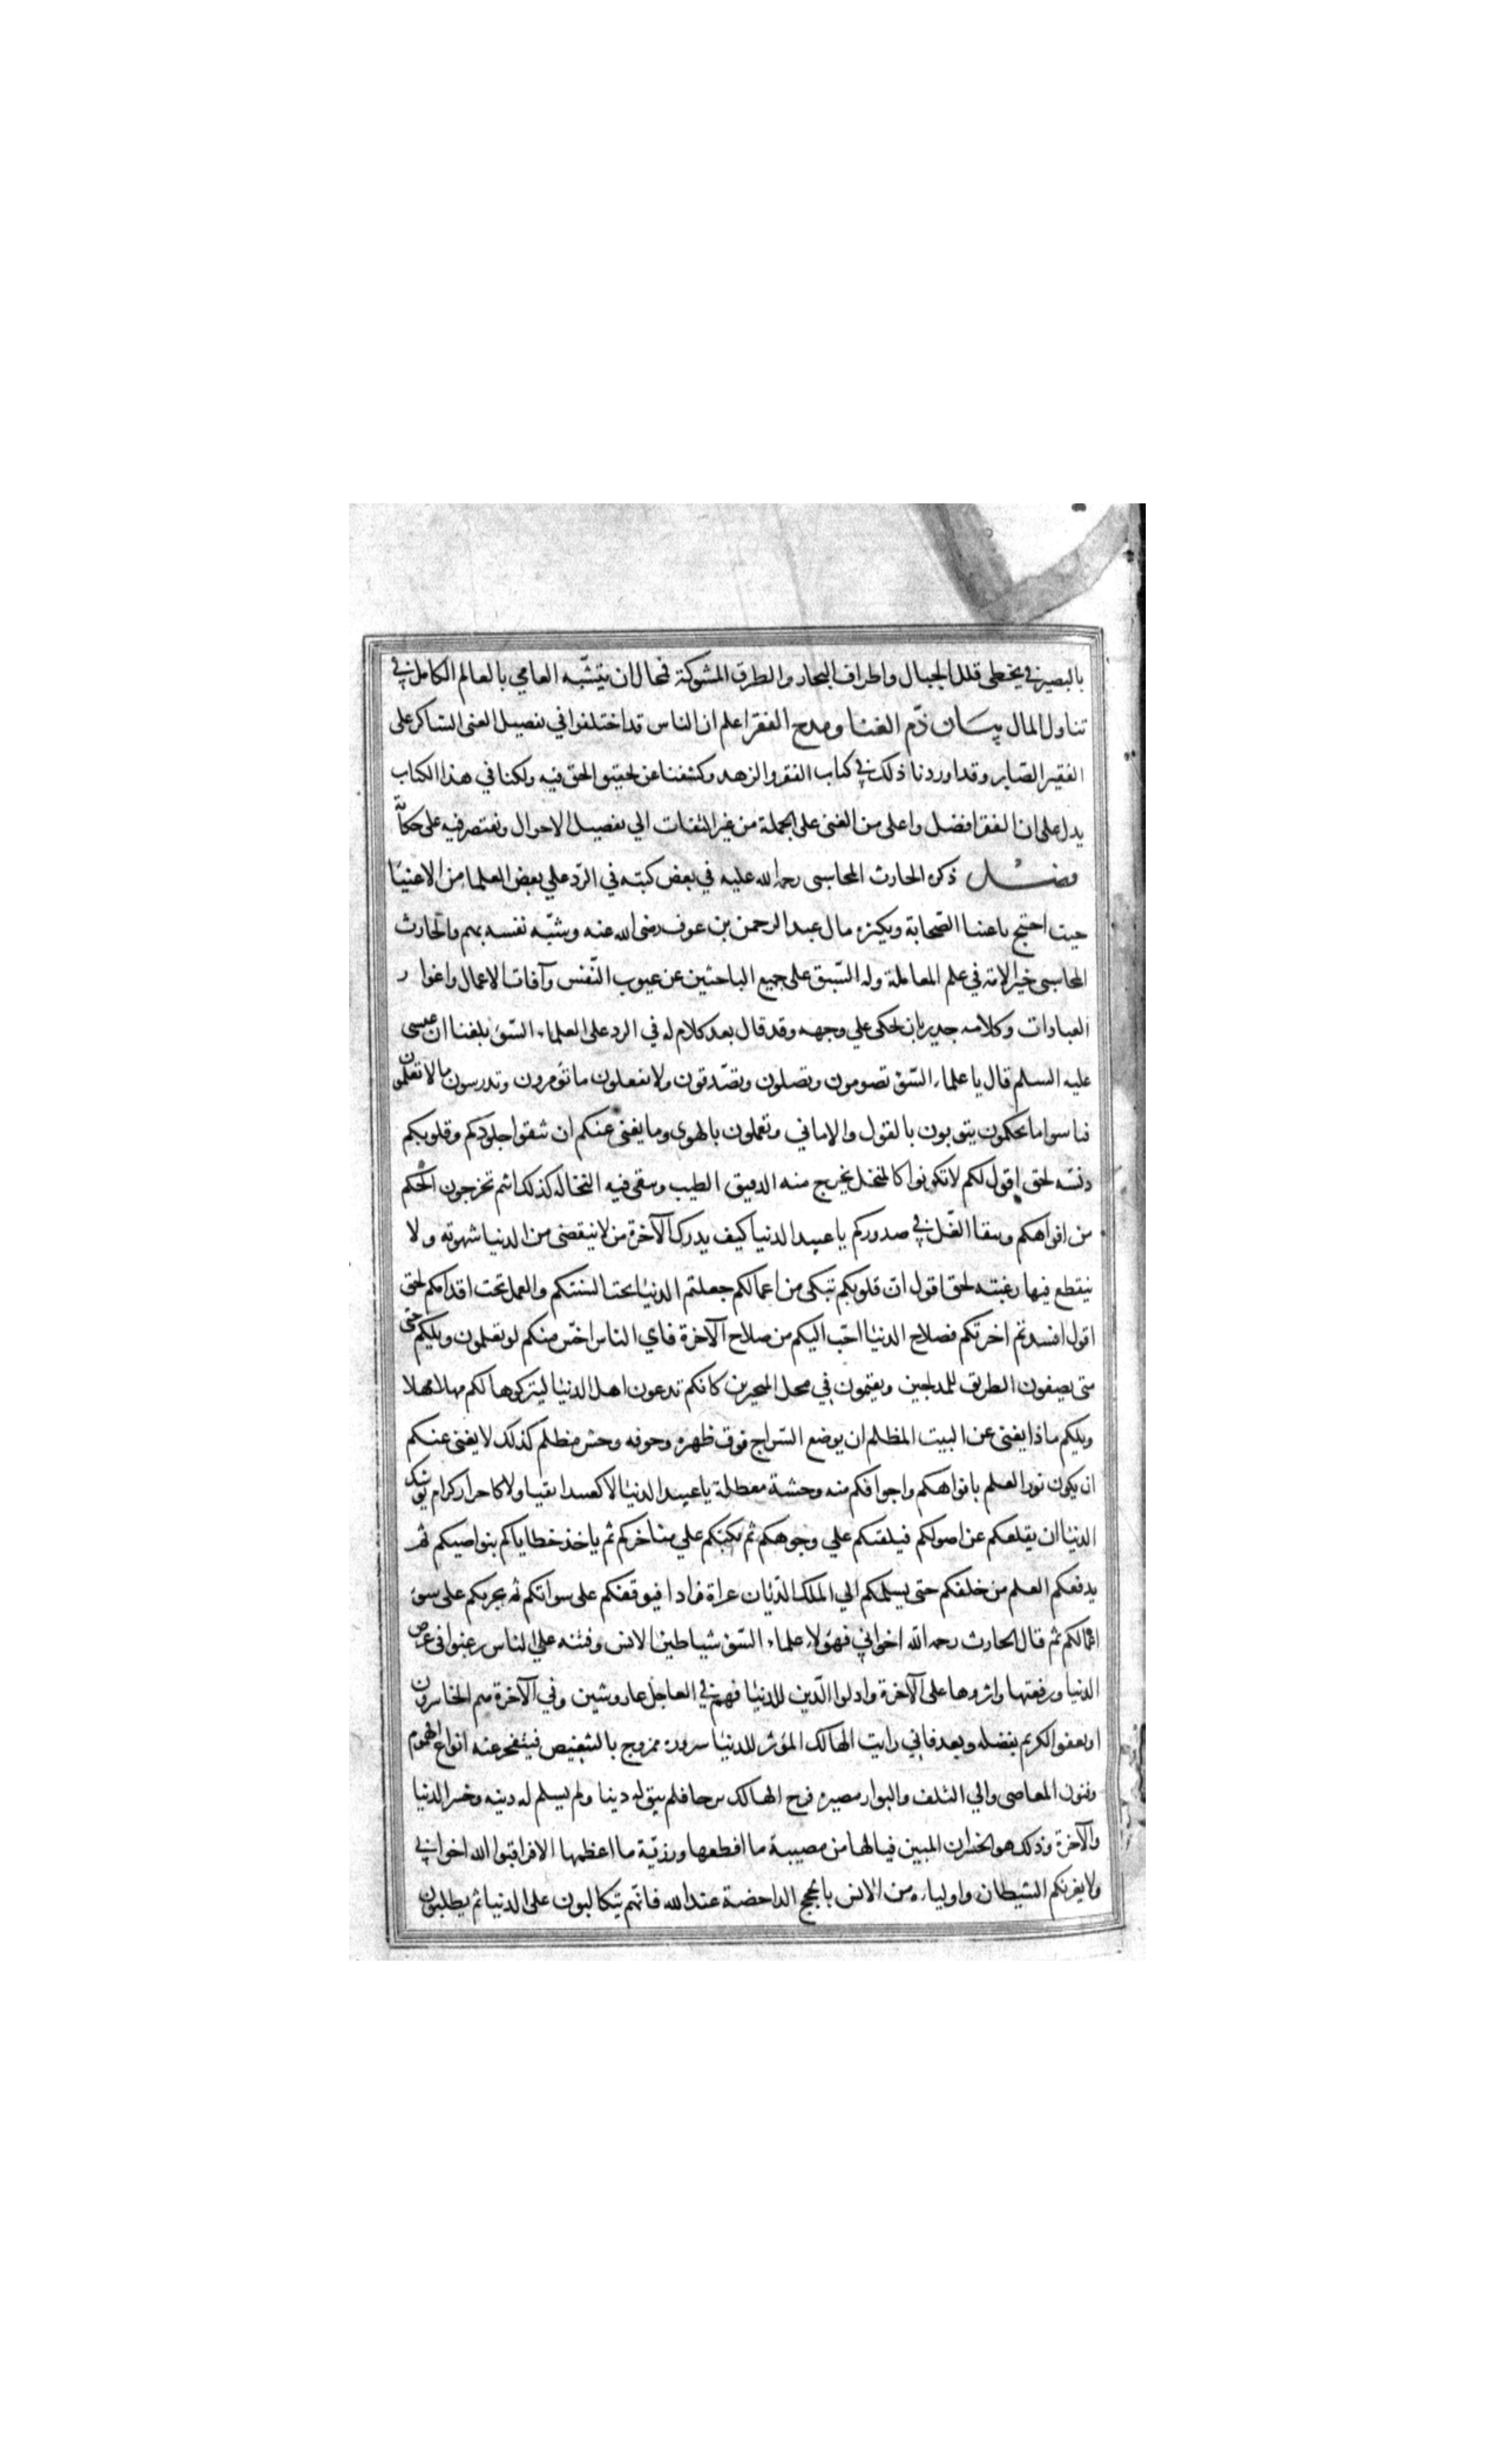 بالبصير في يخطى قلل الجبال واطراف البحار والطرق المشوكة فمحال ان يتشبه العامي بالعالم الكامل في
تناول المال بيان ذم الغنا ومدح الفقر اعلم ان الناس قد اختلفوا في تفصيل الغنى الشاكر على
الفقير الصابر وقد اوردنا ذلك في كتاب الفقر والزهد وكشفنا عن تحقيق الحق فيه ولكنا في هذا الكتاب
يدل على ان الفقر افضل واعلى من الغنى على الجملة من غير التفات الي تفصيل الاحوال ونقتصر فيه على حكاية
فصل ذكره الحارث المحاسبى رحمة الله عليه في بعض كتبه في الرد علي بعض العلماء من الاغنيا
حيث احتج باغنيا الصحابة وبكثرة مال عبد الرحمن بن عوف رضى الله عنه وشبه نفسه بهم والحارث
المحاسبى خير الامة في علم المعاملة وله السبق على جميع الباحثين عن عيوب النفس وآفات الاعمال واغوار
العبادات وكلامه جدير بان يحكى علي وجهه وقد قال بعد كلام له في الرد على العلماء السوء بلغنا ان عيسى
عليه السلم قال يا علماء السوء تصومون وتصلون وتصدقون ولا تفعلون ما تؤمرون وتدرسون مالا تعلمون
فيا سوا ما تحكمون يتوبون بالقول والاماني وتعملون بالهوى وما يغنى عنكم ان تنقوا جلودكم وقلوبكم
دنسه بحق اقول لكم لا تكونوا كالمنخل يخرج منه الدقيق الطيب وسقى فيه النخاله كذلك انتم تخرجون الحكم
من افواهكم وسقا الغل في صدوركم يا عبيد الدنيا كيف يدرك الآخرة من لا ينقضى من الدنيا شهوته ولا
ينقطع فيها رغبته بحق اقول ان قلوبكم تبكى من اعمالكم جعلتم الدنيا تحت السنتكم والعمل تحت اقدامكم بحق
اقول افسدتم اخرتكم فصلاح الدنيا احب اليكم من صلاح الآخرة فاي الناس اخس منكم لو تعلمون ويلكم حتى
متى تصفون الطريق للمدلجين وتقيمون في محل المتحيرين كانكم تدعون اهل الدنيا ليتركوها لكم مهلا مهلا
ويلكم ماذا يغنى عن البيت المظلم ان يوضع السراج فوق ظهره وجوفه وحش مظلم كذلك لا يغنى عنكم
ان يكون نور العلم بافواهكم واجوافكم منه وحشة معطلة يا عبيد الدنيا لا كعبيد اتقيا ولا كاحرار كرام توشك
الدنيا ان يقلعكم عن اصولكم فيلقيكم علي وجوهكم ثم تكبكم علي مناخركم ثم ياخذ خطاياكم بنواصيكم ثم
يدفعكم العلم من خلفكم حتى يسلمكم الي الملك الديان عراة فرادا فيوقفكم على سواتكم ثم يجزيكم على سوء
اعمالكم ثم قال الحارث رحمه الله اخواني فهؤلاء علماء السوء شياطين الانس وفتنه على الناس رغبوا في عرض
الدنيا ورفعتها واثروها على الآخرة واذلوا الدين للدنيا فهم في العاجل عار وشين وفي الآخرة هم الخاسرون
او يعفو الكريم بفضله وبعد فاني رايت الهالك المؤثر للدنيا سروره ممزوج بالتنغيص فينفجر عنه انواع الهموم
وفنون المعاصى والي التلف والبوار مصيره فرح الهالك برجا فلم يبق له دينا ولم يسلم له دينه وخسر الدنيا
والآخرة وذلك هو الخسران المبين فيالها من مصيبة ما افظعها ورزية ما اعظمها الا فراقبوا الله اخواني
ولا يغرنكم الشيطان واولياءه من الانس بالحجج الداحضة عند الله فانهم يتكالبون على الدنيا ثم يطلبون